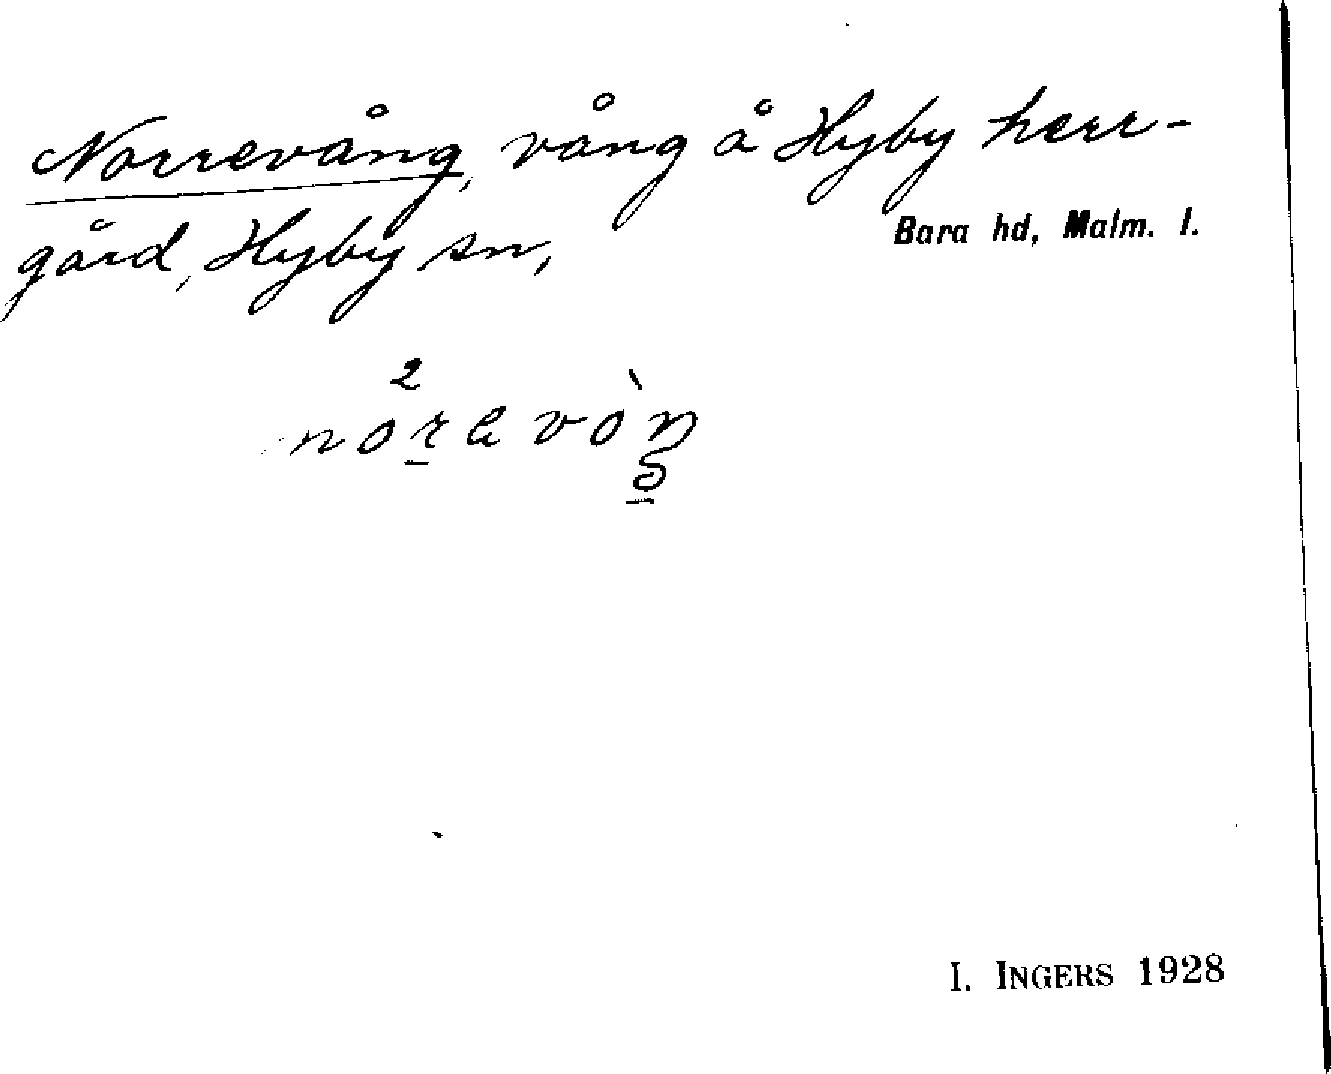 Norrevång, vång å Hyby herr-
gård, Hyby sn, Bara hd, Malm. l.
I. INGERS 1928